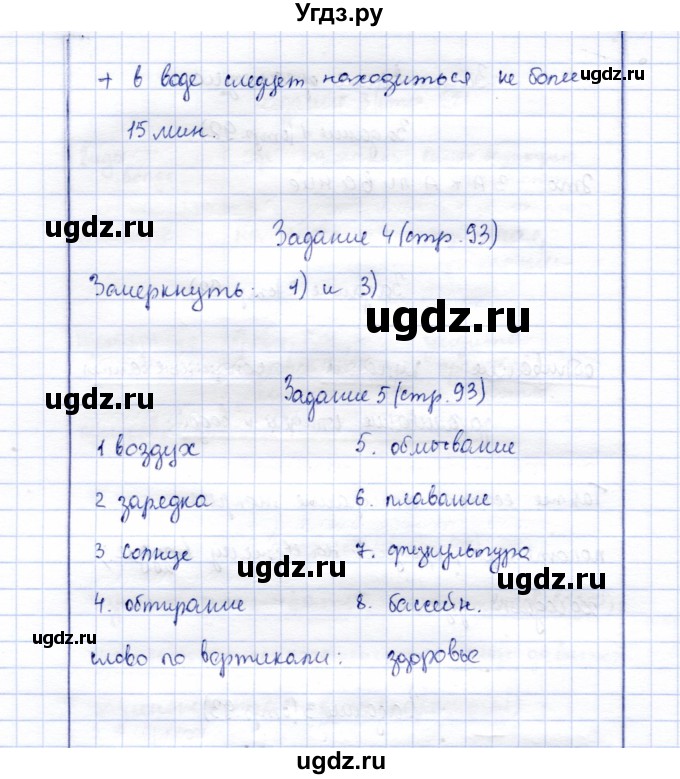 Угдз.ру
+ в воде следует находиться не более
ugdz.ru
15 мин.
ugdz.ru
Задание 4 (стр. 93)
Замеркнуть: 1) и 3)
ugdz.ru
ugdz.ru
Задание 5 (стр. 93)
1 воздух
2 зарядка
3 солнце
4. обтирание
5. обмывание
6. плавание
7. физкультура
8. бассейн.
ugdz.ru
ugdz.ru
ugdz.ru
слово по вертикали: здоровье
ugdz.ru
ugdz.ru